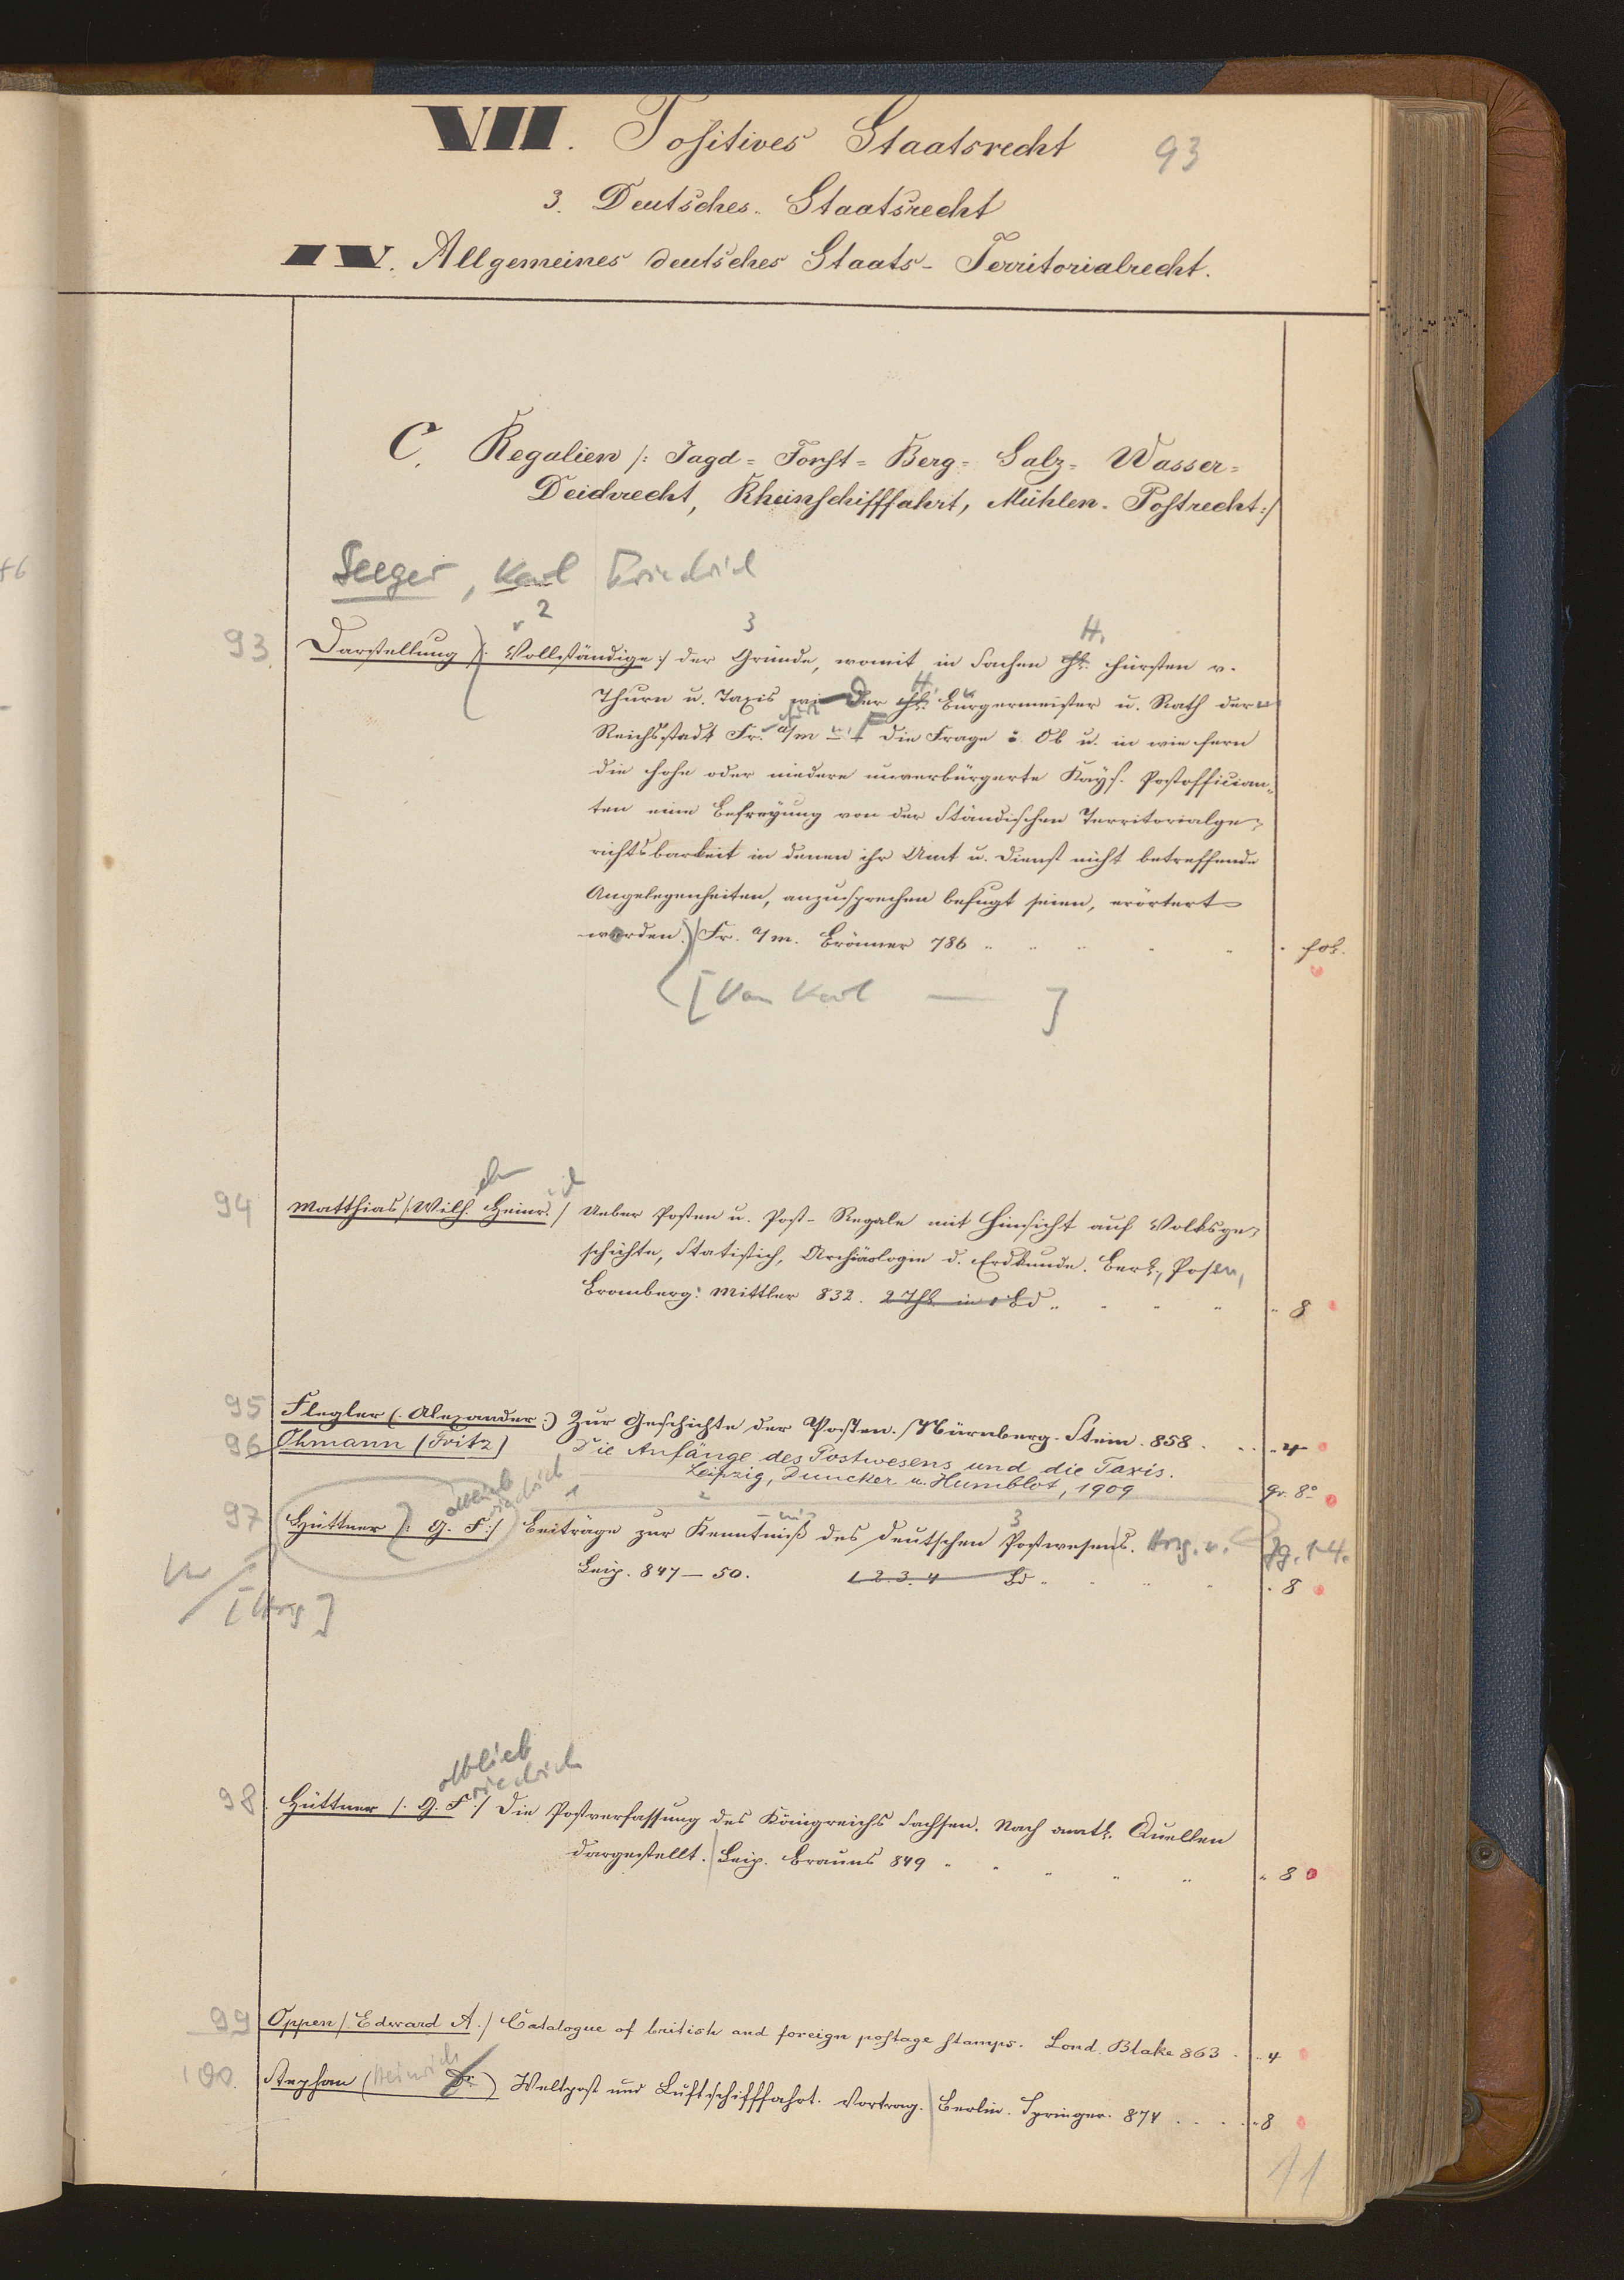 VII. Positives Staatsrecht 93
3. Deutsches Staatsrecht
IV. Allgemeines deutsches Staats- Territorialrecht.
C. Regalien /: Jagd= Forst= Berg= Salz= Wasser=
Deichrecht, Rheinschifffahrt, Mühlen- Postrecht :/
Seeger, Karl Friedrich
2 3 H.
93 Darstellung /: Vollständige :/ der Gründe, womit in Sachen Fürsten v.
Thurn u. Taxis der Bürgermeister u. Rath der
Reichsstadt Fr. a/m die Frage: Ob u. in wie fern
die hohe oder niedere unverbürgerte Kays. Postoffician=
ten eine Befreyung von der Ständischen Territorialge=
richtsbarkeit in denen ihr Amt u. Dienst nicht betreffende
Angelegenheiten, anzusprechen befugt seien, erörtert
worden. Fr. a/m. Brönner 786 fol.
[Von Karl — ]
94 Matthias /: Wilh. Heinr. :/ Ueber Posten u. Post-Regale mit Hinsicht auf Volksge=
schichte, Statistich, Archäologie d. Erdkunde. Berl., Posen,
Bromberg: Mittler 832. 2 Thl. in 1 Bd. 8
95 Flegler (: Alexander :) Zur Geschichte der Posten. Nürnberg. Stein. 858. 4
96 Ohmann (Fritz) Die Anfänge des Postwesens und die Taxis.
Leipzig, Duncker u. Humblot, 1909 gr. 8º
ottlieb riedrich 1 2 3
97 Hüttner /: G. F. :/ Beiträge zur Kenntniß des deutschen Postwesens. Hrsg. v. Jg. 1-4.
Leip. 847–50. 1. 2. 3. 4 Bd. 8
[Hrsg]
ottlieb
riedrich
98 Hüttner /: G. F. :/ Die Postverfassung des Königreichs Sachsen. Nach amtl. Quellen
dargestellt. Leip. Brauns 849 8
99 Oppen /: Edward A. :/ Catalogue of british and foreign postage stamps. Lond. Blake 863. 4
100. Stephan (Heinrich Dr.) Weltpost und Luftschifffahrt. Vortrag. Berlin. Springer. 874 8
11